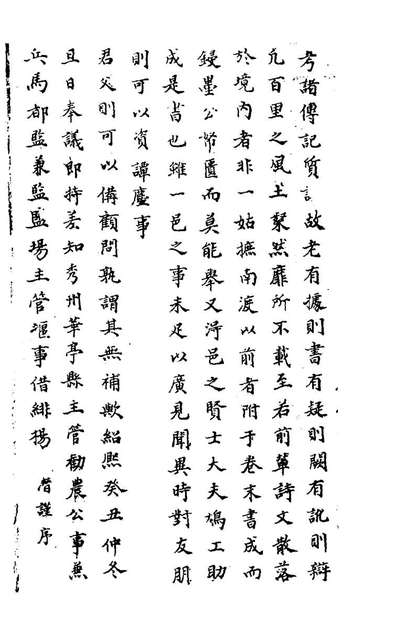 考諸傳記質諸故老有據則書有疑則闕有訛則辯
凢百里之風土粲然靡所不載至若前軰詩文散落
於境內者非一姑摭南渡以前者附于卷末書成而
鋟墨公帑匱而莫能舉又淂邑之賢士大夫鳩工助
成是書也雖一邑之事未足以廣見聞異時對友朋
則可以資譚麈事
君父則可以備顧問孰謂其無補歟紹熈癸丑仲冬
旦日奉議郎特差知秀州華亭縣主管勸農公事兼
兵馬都監兼監鹽場主管堰事借緋楊 潛謹序